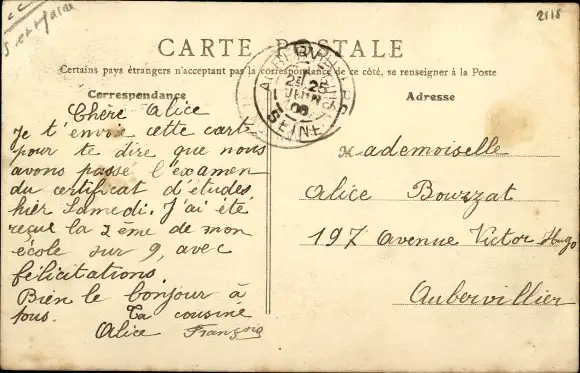 2118
CARTE POSTALE
Certains pays étrangers n'acceptant pas la correspondance de ce côté, se renseigner à la Poste
Correspondance
Chère Alice
Je t'envoie cette carte
pour te dire que nous
avons passé l'examen
du certificat d'études
hier Samedi. J'ai été
reçue la 2ème de mon
école sur 9, avec
félicitations.
Bien le bonjour à
tous. Ta cousine
Alice François
AUBERVILLIERS
2E 25
1 JUIN
08
SEINE
Adresse
Mademoiselle
Alice Bourzat
197 Avenue Victor Hugo
Aubervillier